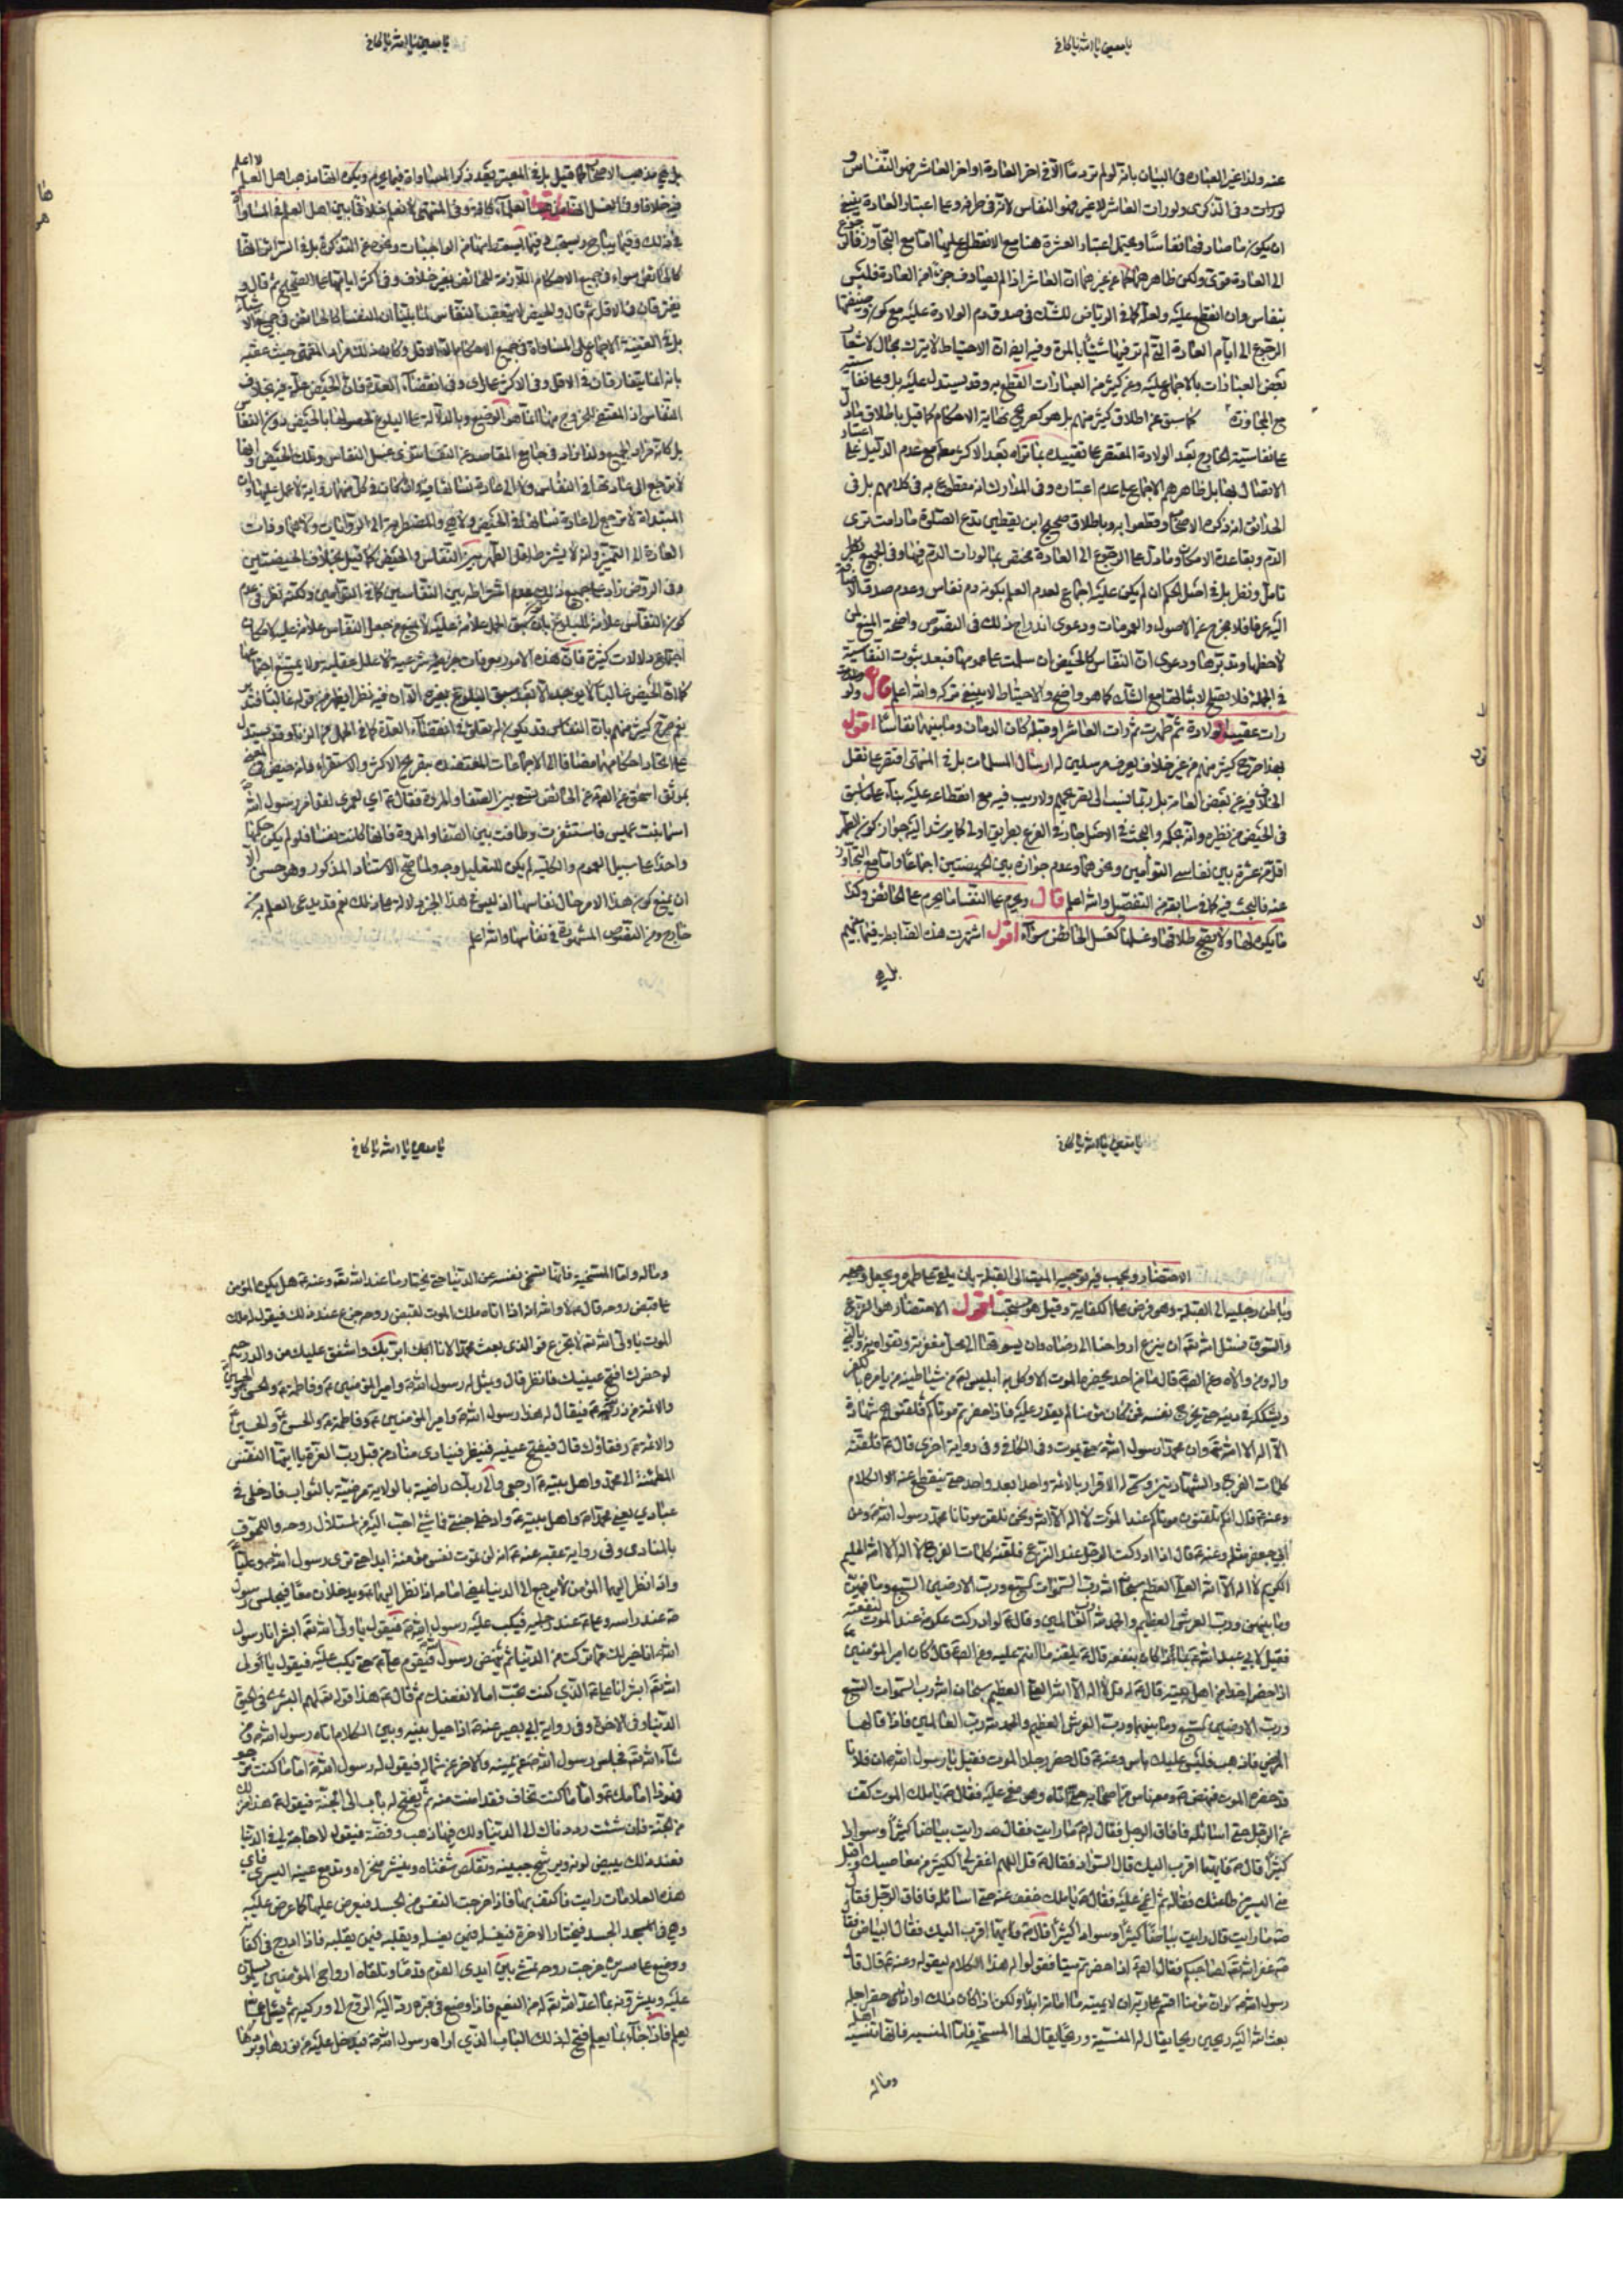 يا معين يا الله يا كافي
عنه ولذا غير العبارة في البيان بانه لو لم تر دما الا في اخر العادة او اخر العاشر فهو النفاس و
لورات وفي الذكرى ولو رات العاشر لا غير فهو النفاس لانه في طرفه وعلى اعتبار العادة ينبغي
ان يكون ما صادفها نفاسا ويحتمل اعتبار العشرة هنا مع الانقطاع عليها اما مع التجاوز فالى
الى العادة متى ولكن ظاهرهما كما عن غيرهما ان العاشر اذا لم يصادف جزء من العادة فليس
بنفاس وان انقطع عليه ولعله كما في الرياض للشك في صدق دم الولادة عليه مع كون
الرجوع الى ايام العادة التي لم تر فيها شيئا بالمرة وفيه ايضا ان الاحتياط لا يترك بحال
بعض العبارات بالاجماع عليه وعن كثير من العبارات القطع به وقد يستدل عليه بل وعلى
مع المجاوزة كما سبق عن اطلاق كثير منهم بل هو كصريح نهاية الاحكام كما قيل باطلاق
على نفاسية الخارج بعد الولادة المقتصر على تقييده بما تراه بعد الاكثر مع عدم الدليل على
الاتصال بها بل ظاهرهم الاجماع على عدم اعتباره وفي المدارك انه مقطوع به في كلامهم بل في
الحدائق انه ذكره الاصحاب وقطعوا به وباطلاق صحيح ابن يقطين تدع الصلوة ما دامت ترى
الدم وبقاعدة الامكان وما دل على الرجوع الى العادة مختص بما لو رات الدم فيها وفي الجميع
تامل ونظر بل في اصل الحكم ان لم يكن عليه اجماع لعدم العلم بكونه دم نفاس وعدم صدق
اليه عرفا فلا مخرج عن الاصول والعمومات ودعوى اندراج ذلك في النصوص واضحة المنع
لاحظها وتدبرها ودعوى ان النفاس كالحيض ان سلمت على عمومها فبعد ثبوت النفاسية
في الجملة فلا يصلح لاثباتها مع الشك كما هو واضح والاحتياط لا ينبغي تركه والله اعلم قال ولو
رات عقيب الولادة ثم طهرت ثم رات العاشر او قبله كان الدمان وما بينهما نفاسا اقول
بهذا صرح كثير منهم من غير خلاف يعرف مرسلين له ارسال المسلمات بل في المنتهى اقتصر على نقل
الخلاف فيه عن بعض العامة بل ربما نسب الى تصريحهم ولا ريب فيه مع انقطاعه عليه بناء على ما سبق
في الحيض من نظيره وانه بحكمه والبحث في الاصل جار في الفرع بطريق اولى كما يرشد اليه جواز كون الطهر
اقل من عشرة بين نفاسي التوامين ونحوهما وعدم جوازه بين الحيضتين اجماعا واما مع التجاوز
عنه فالبحث فيه كما في سابقه من التفصيل والله اعلم قال ويحرم على النفساء ما يحرم على الحائض وكذا
ما يكره لها ولا يصح طلاقها وغسلها كغسل الحائض سواء اقول اشتهرت هذه الضابطة فيما بينهم
بل هي
يا معين يا الله يا كافي
بل هي مذهب الاصحاب كما قيل بل في المعتبر بعد ذكر المساواة فيما يحرم ويكره انها مذهب اهل العلم لا اعلم
فيه خلافا وفي الغسل انه مذهب العلماء كافة وفي المنتهى لا نعلم خلافا بين اهل العلم في المساواة
في ذلك وفيما يباح ويستحب وفيما يسقط عنها من الواجبات ونحوه عن التذكرة بل في السرائر انها
كالحائض سواء في جميع الاحكام اللازمة للحائض بغير خلاف وفي اكثر ايامها على الصحيح ثم قال و
يفترقان في الاقل ثم قال والحيض لا يتعقب النفاس لما بلينا ان النفساء كالحائض في جميع
بل في الغنية الاجماع على المساواة في جميع الاحكام الا في الاقل وكان ذلك مراد المنتهى حيث عقبه
بانه انما يتفارقان في الاقل وفي الاكثر على راي وفي انقضاء العدة فان الحيض علة فيه بخلاف
النفاس اذ المقتضي للخروج من العدة انما هو الوضع وبالدلالة على البلوغ لحصولها بالحيض دون النفاس
بل كانه مراد الجميع ولذا زاد في جامع المقاصد
لا ترجع الى عادتها في النفاس ولا الى عادة نسائها
المبتداة لا ترجع الى عادة نسائها في الحيض ولا هي والمضطربة الى الروايات
العادة الى التميز وانه لا يشترط اقل الطهر بين النفاس والحيض كما قيل بخلاف الحيضتين
وفي الروض زاد على جميع ذلك عدم اشتراطه بين النفاسين كما في التوامين ولكنه نظر في
كون النفاس علامة للبلوغ بان سبق الحمل علامة عليه لا يمنع من جعل النفاس علامة عليه لامكان
اجتماع دلالات كثيرة فان هذه الامور معرفات شرعية لا علل عقلية ولا يمتنع
كما ان الحيض غالبا لا يوجد الا بعد سبق البلوغ بغيره الا ان فيه نظرا يظهر من قوله غالبا فتدبر
نعم صرح كثير منهم بان النفاس قد يكون له تعلق في انقضاء العدة كما في الحمل من الزنا وقد يستدل
على اتحاد احكامهما مضافا الى الاجماعات المعتضدة بتصريح الاكثر والاستقراء بانه حيض
بموثق اسحق عن الصادق عن الحائض تسعى بين الصفا والمروة فقال ع اي لعمري لقد امر رسول الله ص
اسماء بنت عميس فاستثفرت وطافت بين الصفا والمروة فانها كانت نفساء فلو لم يكن حكمهما
واحدا على سبيل العموم والكلية لم يكن للتعليل وجه ولما صح الاستناد المذكور وهو حسن الا
ان يمنع كون هذا الامر حال نفاسها اذ ليس في هذا الخبر دلالة على ذلك نعم قد يدعى العلم به من
خارج ومن النصوص المشهورة في نفاسها والله اعلم
يا معين يا الله يا كافي
الاحتضار ويجب فيه توجيه الميت الى القبلة بان يلقى على ظهره ويجعل وجهه
وباطن رجليه الى القبلة وهو فرض على الكفاية وقيل هو مستحب اقول الاحتضار هو النزع
والسوق فنسئل الله تعالى ان ينزع ارواحنا الى رضاه وان يسوقها الى محل مغفرته وتقواه
واله وعن الصادق ع قال ما من احد يحضره الموت الا وكل به ابليس لعنه من شياطينه من يامره بالكفر
ويشككه في دينه حتى يخرج نفسه فمن كان مؤمنا لم يقدر عليه فاذا حضرتم موتاكم فلقنوهم شهادة
ان لا اله الا الله وان محمدا رسول الله ص حتى يموت وفي الكافي وفي رواية اخرى قال ع فلقنه
كلمات الفرج والشهادتين وتسمي له الاقرار بالائمة واحدا بعد واحد حتى ينقطع عنه الكلام
وعنه ع قال انكم تلقنون موتاكم عند الموت لا اله الا الله ونحن نلقن موتانا محمد رسول الله ص وعن
ابي جعفر مثله وعنه ع قال اذا ادركت الرجل عند النزع فلقنه كلمات الفرج لا اله الا الله الحليم
الكريم لا اله الا الله العلي العظيم سبحان الله رب السموات السبع ورب الارضين السبع وما فيهن
وما بينهن ورب العرش العظيم والحمد لله رب العالمين وقال ع لو ادركت عكرمة عند الموت لنفعته
فقيل لابي عبد الله ع بما ذا كان ينفعه قال يلقنه ما انتم عليه وعن الصادق قال كان امير المؤمنين ع
اذا حضر احدا من اهل بيته قال له قل لا اله الا الله العلي العظيم سبحان الله رب السموات السبع
ورب الارضين السبع وما بينهما ورب العرش العظيم والحمد لله رب العالمين فاذا قالها
المريض فاذهب فليس عليك باس وعنه ع قال حضر رجلا الموت فقيل يا رسول الله ان فلانا
قد حضره الموت فنهض ع ومعه ناس من اصحابه حتى اتاه وهو مغمى عليه فقال ع يا ملك الموت كف
عن الرجل حتى اسائله فافاق الرجل فقال له ما رايت فقال رايت بياضا كثيرا وسوادا
كثيرا قال ع فايهما اقرب اليك قال السواد فقال ع قل اللهم اغفر لي الكثير من معاصيك واقبل
مني اليسير من طاعتك فقاله ثم اغمي عليه فقال ع يا ملك خفف عنه حتى اسائله فافاق الرجل فقال
ما رايت قال رايت بياضا كثيرا وسوادا كثيرا قال ع فايهما اقرب اليك فقال البياض فقال
ص غفر الله لصاحبكم فقال الصادق اذا حضرتم ميتا فقولوا له هذا الكلام ليقوله وعنه ع قال قال
رسول الله ص لو ان مؤمنا اقسم على ربه ان لا يميته ما اماته ابدا ولكن اذا كان ذلك او اذا حضر اجله
بعث الله اليه ريحين ريحا يقال له المنسية وريحا يقال لها المسخية فاما المنسية فانها تنسيه اهله
وماله
يا معين يا الله يا كافي
وماله واما المسخية فانها تسخي نفسه عن الدنيا حتى يختار ما عند الله تعالى وعنه ع هل يكره المؤمن
على قبض روحه قال لا والله انه اذا اتاه ملك الموت لقبض روحه جزع عند ذلك فيقول له ملك
الموت يا ولي الله لا تجزع فو الذي بعث محمدا لانا ابر بك واشفق عليك من والد رحيم
لو حضرك افتح عينيك فانظر قال ويمثل له رسول الله ص وامير المؤمنين ع وفاطمة ع والحسن والحسين
والائمة من ذريتهم فيقال له هذا رسول الله ص وامير المؤمنين ع وفاطمة ع والحسن ع والحسين ع
والائمة ع رفقاؤك قال فيفتح عينيه فينظر فينادي مناد من قبل رب العزة يا ايتها النفس
المطمئنة الى محمد واهل بيته ارجعي الى ربك راضية بالولاية مرضية بالثواب فادخلي في
عبادي يعني محمدا ص واهل بيته ع وادخلي جنتي فما شيء احب اليه من استلال روحه واللحوق
بالمنادي وفي رواية عقبة عنه ع انه لن تموت نفس مؤمنة ابدا حتى ترى رسول الله ص وعليا ع
واذا نظر اليهما المؤمن لا يرجع الى الدنيا يمضي امامه اذا نظر اليهما ويدخلان معا فيجلس رسول
ص عند راسه وعلي ع عند رجليه فيكب عليه رسول الله ص فيقول يا ولي الله ابشر انا رسول
الله انا خير لك مما تركت من الدنيا ثم ينهض رسول الله فيقوم علي ع حتى يكب عليه فيقول يا ولي
الله ابشر انا علي ع الذي كنت تحب اما لانفعنك ثم قال ع هذا قوله تعالى لهم البشرى في الحيوة
الدنيا وفي الاخرة وفي رواية ابي بصير عنه ع اذا حيل بينه وبين الكلام اتاه رسول الله ص ومن
شاء الله فجلس رسول الله ص عن يمينه والاخر عن شماله فيقول له رسول الله ص اما ما كنت ترجو
فهو ذا امامك واما ما كنت تخاف فقد امنت منه ثم يفتح له باب الى الجنة فيقول هذا منزلك
من الجنة فان شئت رددناك الى الدنيا ولك فيها ذهب وفضة فيقول لا حاجة لي في الدنيا
فعند ذلك يبيض لونه ويرشح جبينه وتقلص شفتاه وينتشر منخراه وتدمع عينه اليسرى فاي
هذه العلامات رايت فاكتف بها فاذا خرجت النفس من الجسد فيعرض عليها كما عرض عليه
وهي في الجسد فيختار الاخرة فيغسله فيمن يغسله ويقلبه فيمن يقلبه فاذا ادرج في اكفانه
ووضع على سريره خرجت روحه تمشي بين ايدي القوم قدما وتلقاه ارواح المؤمنين يسلمون
عليه ويبشرونه بما اعد الله تعالى له من النعيم فاذا وضع في قبره رد اليه الروح الى وركيه ثم يسئل عما
يعلم فاذا جاء بما يعلم فتح له ذلك الباب الذي اراه رسول الله ص فيدخل عليه من نورها وبردها